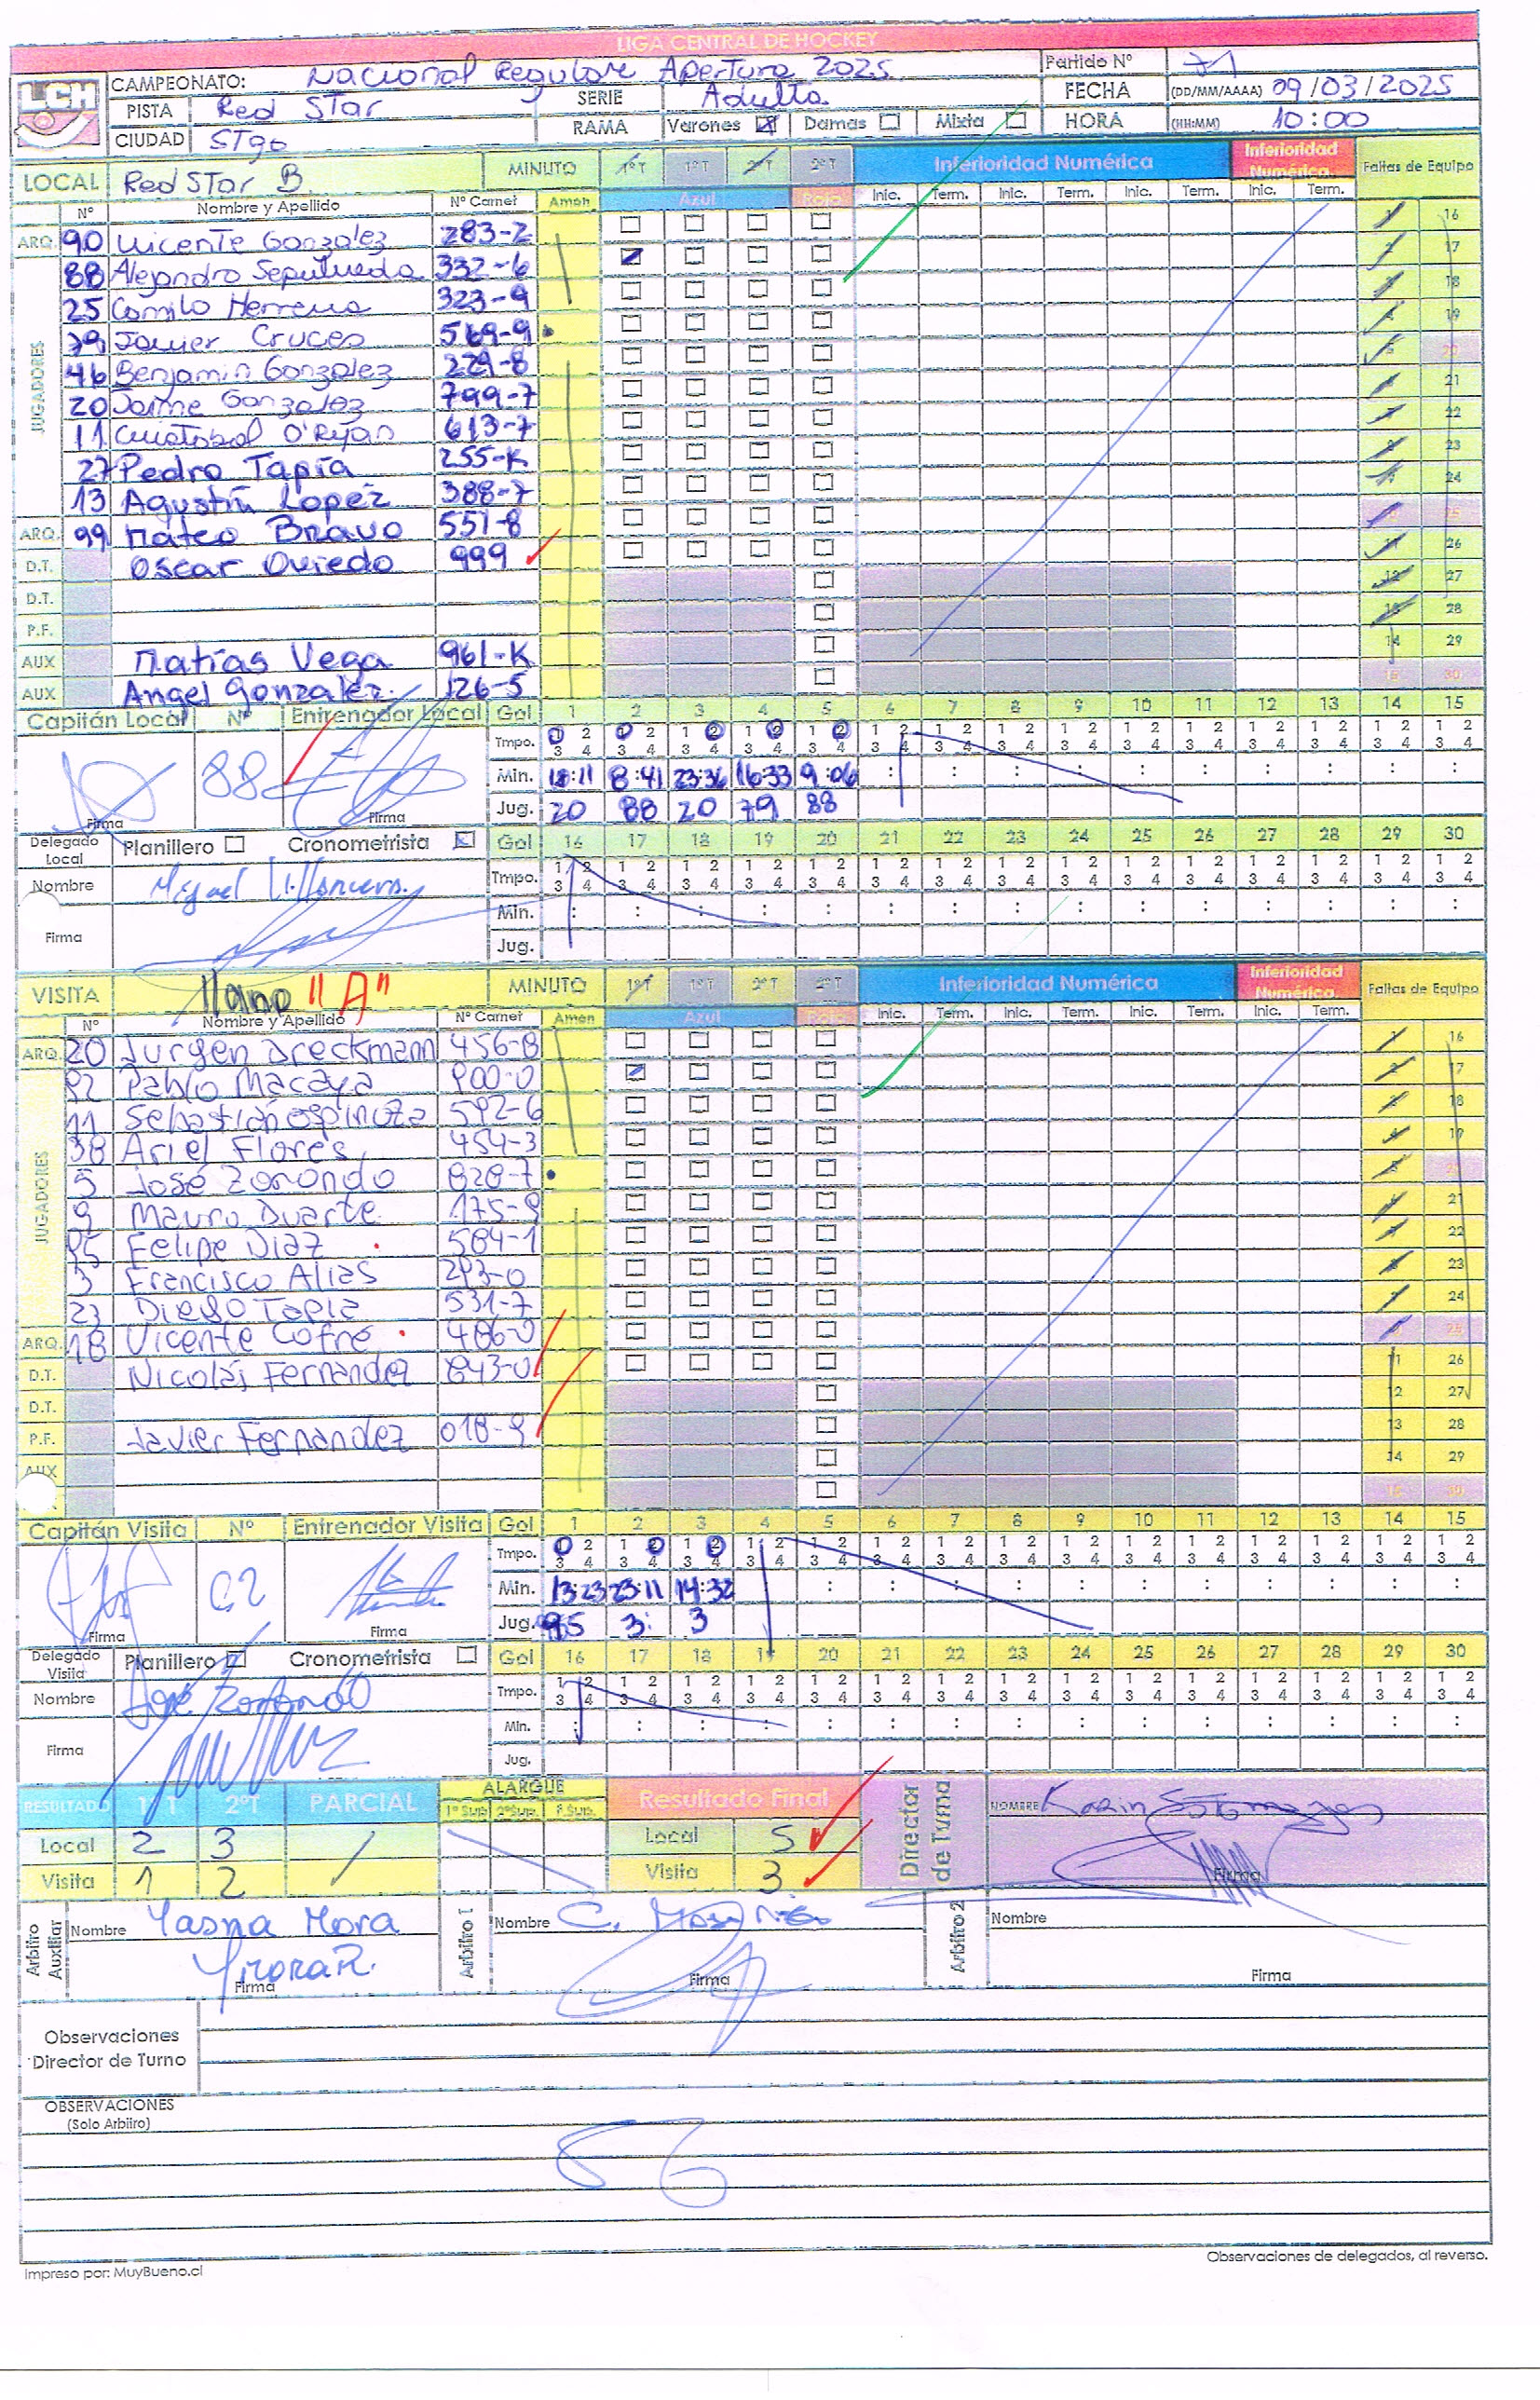 LIGA CENTRAL DE HOCKEY
LCH
CAMPEONATO: Nacional Regular Apertura 2025 Partido N° 71
PISTA Red Star SERIE Adulta FECHA (DD/MM/AAAA) 09/03/2025
CIUDAD STgo RAMA Varones Damas Mixta HORA (HH:MM) 10:00
LOCAL Red STar B. MINUTO 1°T 1°T 2°T 2°T Inferioridad Numérica Inferioridad Numérica Faltas de Equipo
N° Nombre y Apellido N° Carnet Amon Azul Rojo Inic. Term. Inic. Term. Inic. Term. Inic. Term.
ARQ. 90 Vicente Gonzalez 283-2 1 16
JUGADORES
88 Alejandro Sepulveda 332-6 2 17
25 Camilo Herrera 323-9 3 18
79 Javier Cruces 569-9 4 19
46 Benjamin Gonzalez 229-8 5 20
20 Jaime Gonzalez 799-7 6 21
11 Cristobal O'Ryan 613-7 7 22
27 Pedro Tapia 255-K 8 23
13 Agustín Lopez 388-7 9 24
ARQ. 99 Mateo Bravo 551-8 10 25
D.T. Oscar Oviedo 999 11 26
D.T. 12 27
P.F. 13 28
AUX Matías Vega 961-K 14 29
AUX Angel Gonzalez. 126-5 15 30
Capitán Local N° Entrenador Local Gol 1 2 3 4 5 6 7 8 9 10 11 12 13 14 15
Tmpo. 1 2 3 4
88 Min. 18:11 8:41 23:36 16:33 9:06
Firma Firma Jug. 20 88 20 79 88
Delegado Local Planillero Cronometrista Gol 16 17 18 19 20 21 22 23 24 25 26 27 28 29 30
Nombre Miguel Tmpo. 1 2 3 4
Firma Min.
Jug.
VISITA "A" MINUTO 1°T 1°T 2°T 2°T Inferioridad Numérica Inferioridad Numérica Faltas de Equipo
N° Nombre y Apellido N° Carnet Amon Azul Rojo Inic. Term. Inic. Term. Inic. Term. Inic. Term.
ARQ. 20 Jurgen Dreckmann 456-8 1 16
JUGADORES
Pablo Macaya 900-0 2 17
11 Sebastián Espinoza 592-6 3 18
38 Ariel Flores 454-3 4 19
5 José Zorondo 828-7 5 20
9 Mauro Duarte 175-9 6 21
95 Felipe Diaz 584-1 7 22
3 Francisco Alias 293-0 8 23
23 Diego Tapia 531-7 9 24
ARQ. 18 Vicente Cofré 486-0 10 25
D.T. Nicolás Fernandez 843-0 11 26
D.T. 12 27
P.F. Javier Fernandez 018-9 13 28
AUX 14 29
15 30
Capitán Visita N° Entrenador Visita Gol 1 2 3 4 5 6 7 8 9 10 11 12 13 14 15
Tmpo. 1 2 3 4
Min. 13:23 23:11 14:32
Firma Firma Jug. 95 3 3
Delegado Visita Planillero Cronometrista Gol 16 17 18 19 20 21 22 23 24 25 26 27 28 29 30
Nombre José Zorondo Tmpo. 1 2 3 4
Firma Min.
Jug.
RESULTADO 1°T 2°T PARCIAL ALARGUE 1°Sup. 2°Sup. P.Sup. Resultado Final Director de Turno NOMBRE Karin Sotomayor
Local 2 3 Local 5
Visita 1 2 Visita 3 Firma
Arbitro Auxiliar Nombre Yasna Mora Arbitro 1 Nombre C. Arbitro 2 Nombre
Firma Firma Firma
Observaciones
Director de Turno
OBSERVACIONES
(Solo Arbitro)
Impreso por: MuyBueno.cl Observaciones de delegados, al reverso.